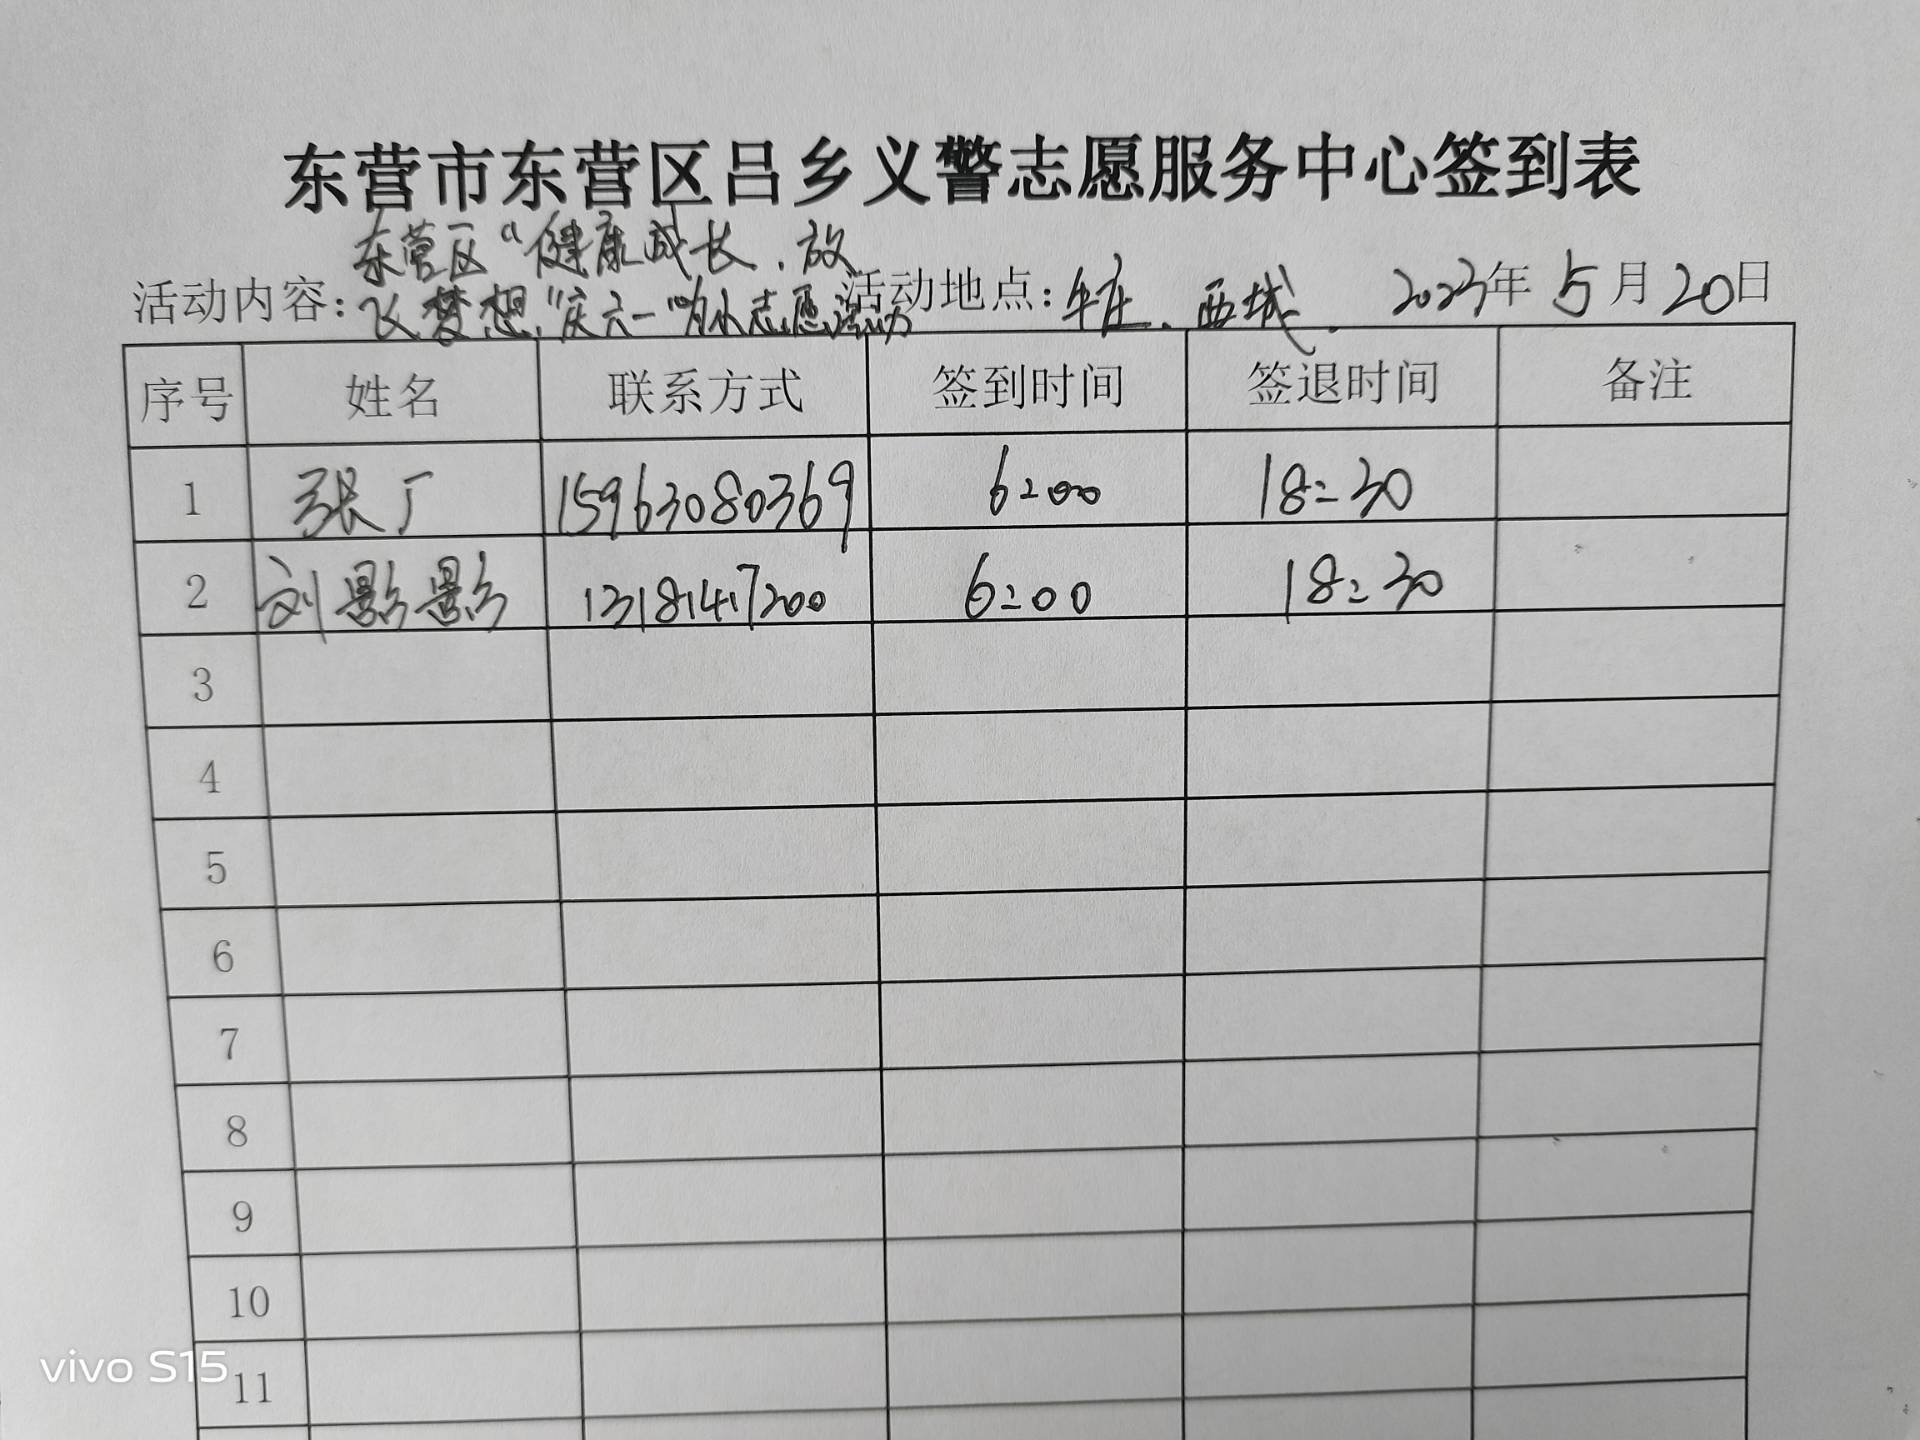 东营市东营区吕乡义警志愿服务中心签到表
东营区“健康成长，放
活动内容：飞梦想，”庆六一 志愿活动 活动地点：牛庄、西城. 2023年5月20日
序号 姓名 联系方式 签到时间 签退时间 备注
1 张广 15963080369 6:00 18:30
2 刘影影 13181417200 6:00 18:30
3
4
5
6
7
8
9
10
11
vivo S15